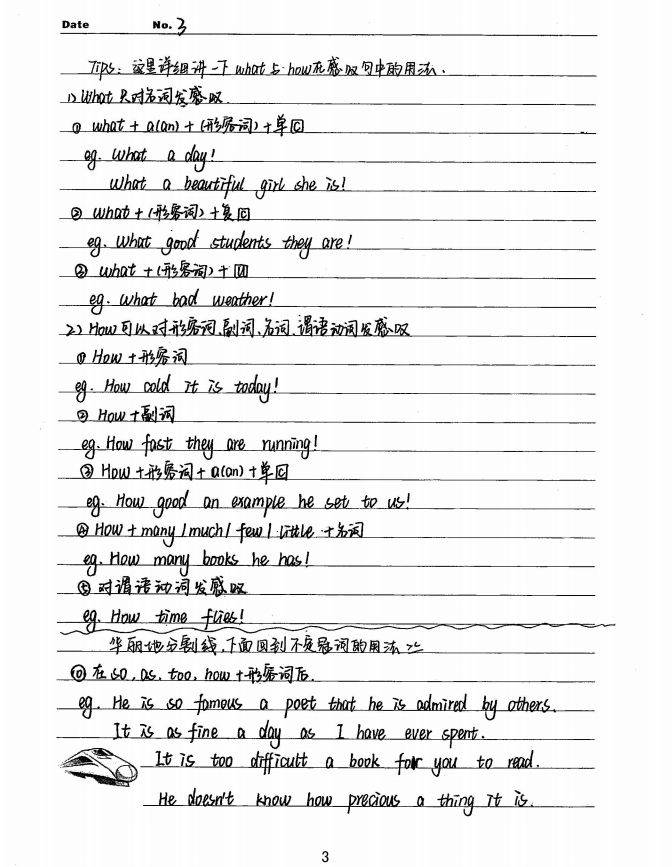 Date No. 3
Tips: 这里详细讲一下 what 与 how在感叹句中的用法.
1) What 只对名词发感叹.
① what + a(an) + (形容词) + 单[C]
eg. What a day!
What a beautiful girl she is!
② what + (形容词) + 复[C]
eg. What good students they are!
③ what + (形容词) + [U]
eg. What bad weather!
2) How可以对形容词、副词、名词、谓语动词发感叹
① How + 形容词
eg. How cold it is today!
② How + 副词
eg. How fast they are running!
③ How + 形容词 + a(an) + 单[C]
eg. How good an example he set to us!
④ How + many / much / few / little + 名词
eg. How many books he has!
⑤ 对谓语动词发感叹
eg. How time flies!
华丽地分割线,下面回到不定冠词的用法
⑩ 在 so, as, too, how + 形容词后.
eg. He is so famous a poet that he is admired by others.
It is as fine a day as I have ever spent.
It is too difficult a book for you to read.
He doesn't know how precious a thing it is.
3